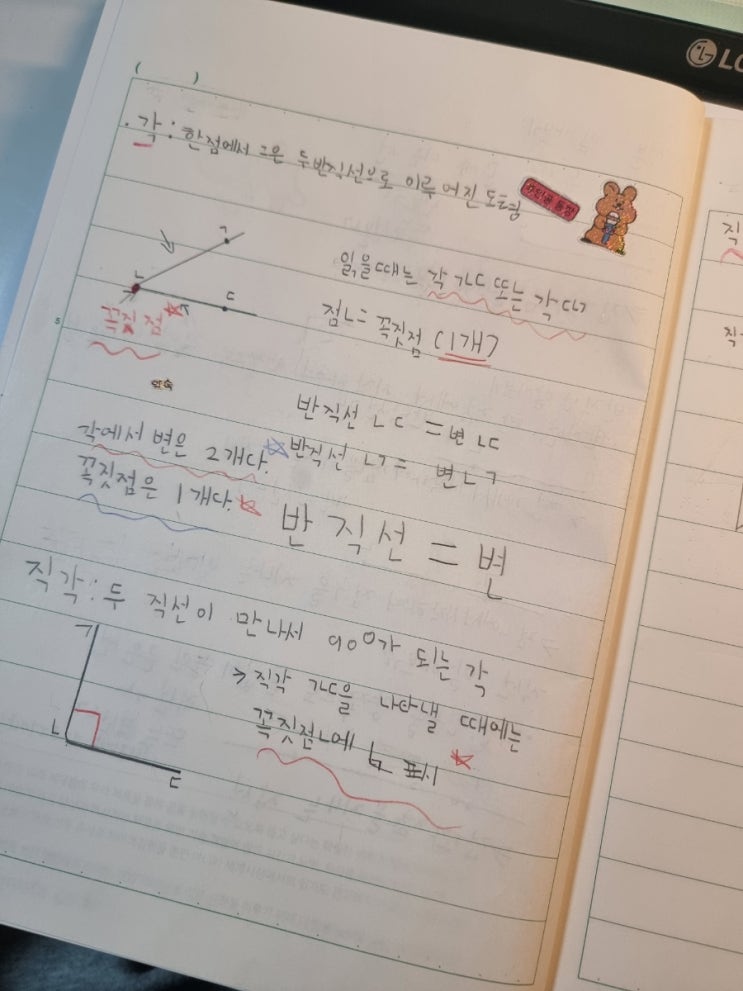 LG
(        )
· 각 : 한 점에서 그은 두 반직선으로 이루어진 도형
ㄱ
ㄴ
ㄷ
꼭짓점
읽을때는 각 ㄱㄴㄷ 또는 각 ㄷㄴㄱ
점ㄴ = 꼭짓점 (1개)
반직선 ㄴㄷ = 변 ㄴㄷ
반직선 ㄴㄱ = 변 ㄴㄱ
각에서 변은 2개다.
꼭짓점은 1개다.
반직선 = 변
직각 : 두 직선이 만나서 90°가 되는 각
ㄱ
ㄴ
ㄷ
→ 직각 ㄱㄴㄷ을 나타낼 때에는
꼭짓점ㄴ에 표시
5
직
직